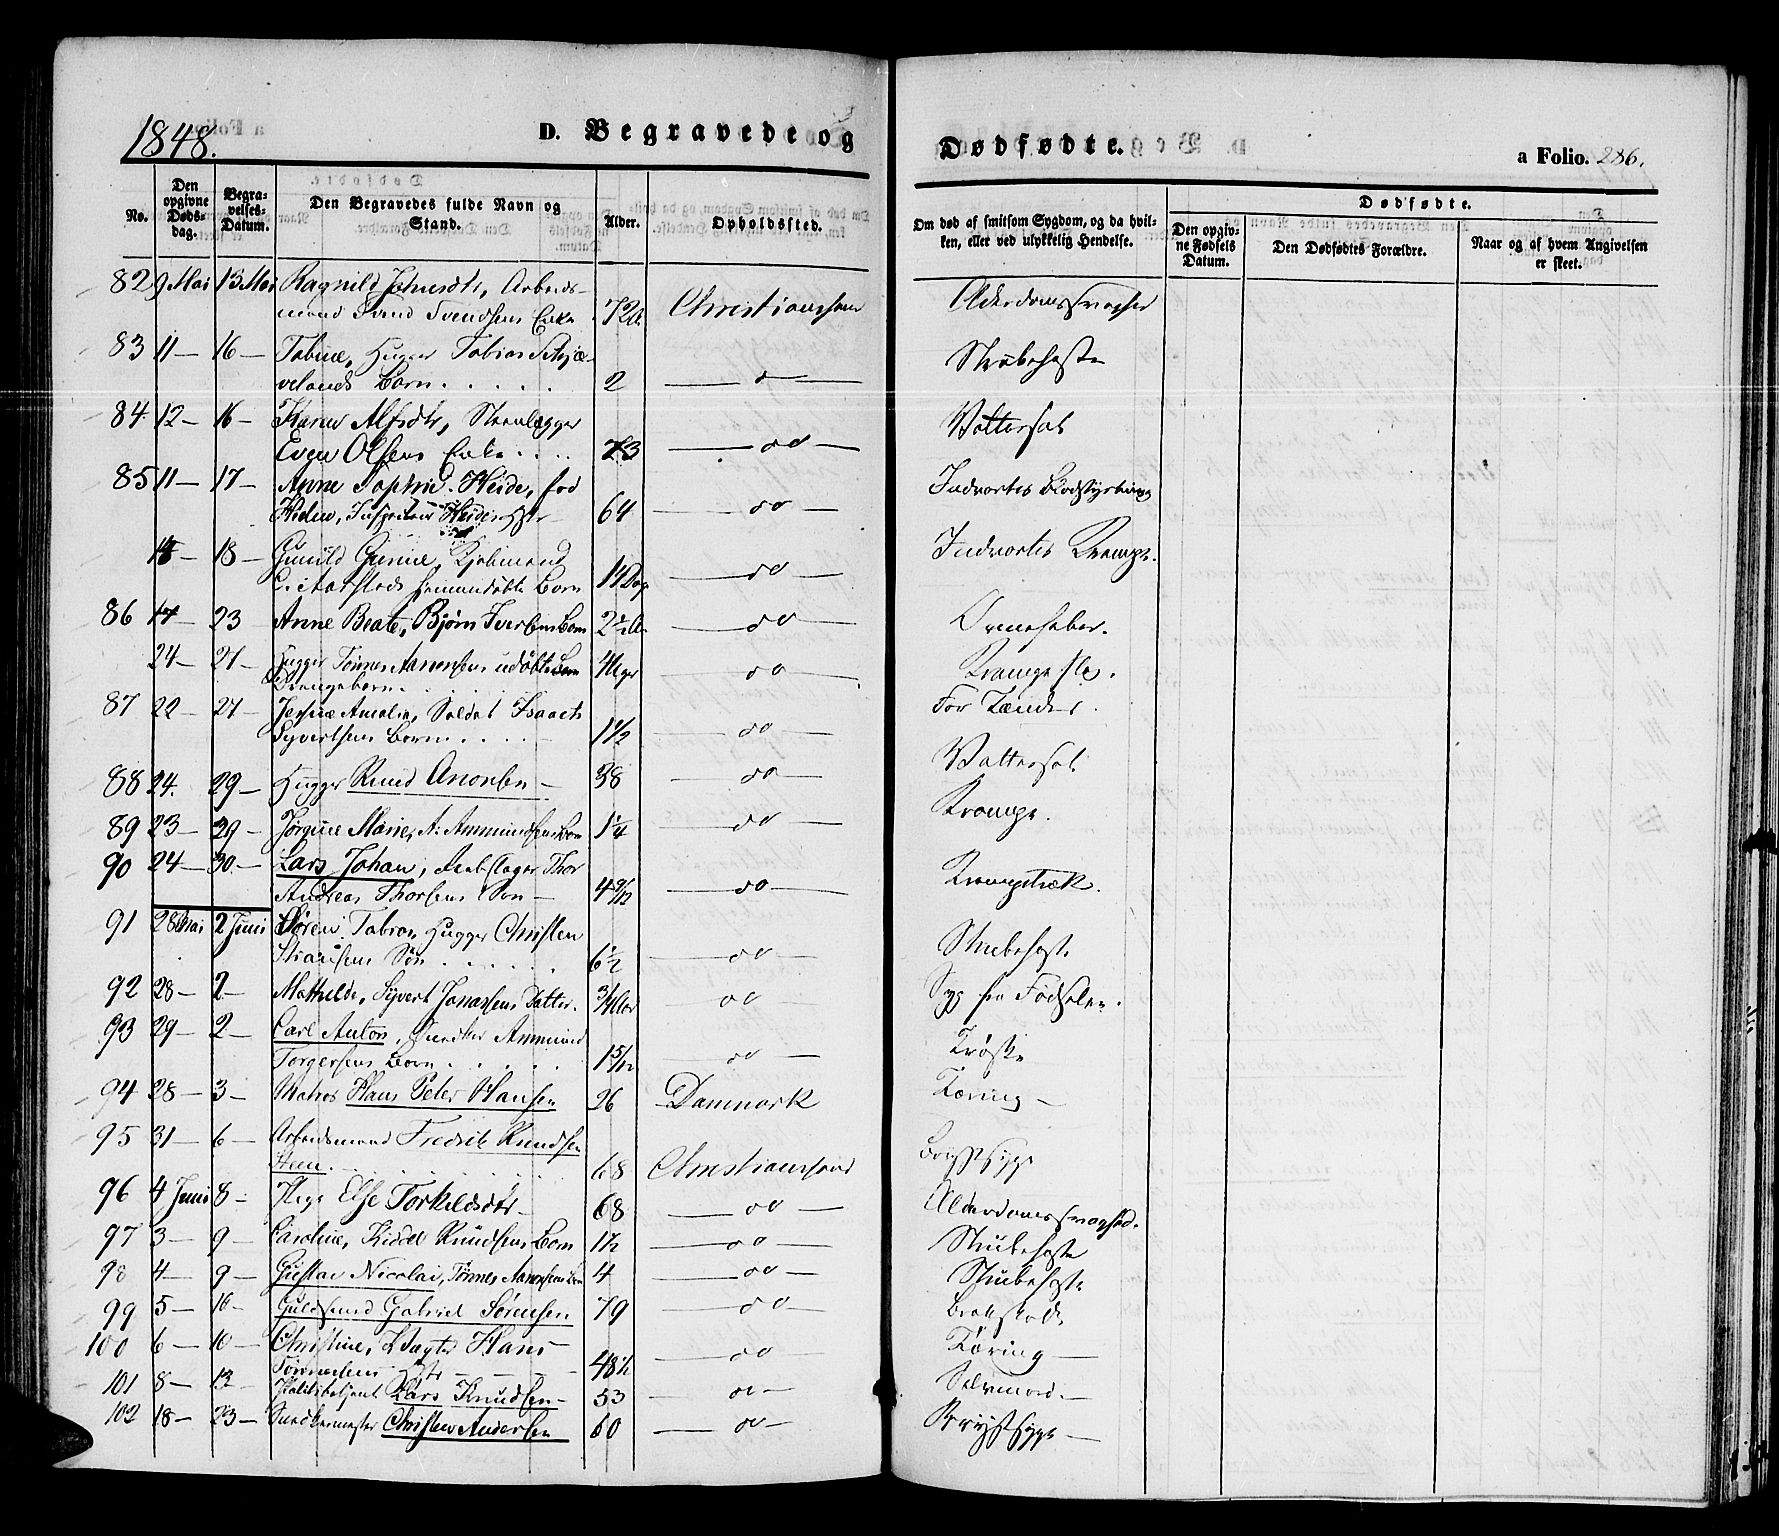 1848.
D. Begravede og Dødfødte.
a Folio. 286.
No.
Den opgivne Døds- dag.
Begra- velses- Datum.
Den Begravedes fulde Navn og Stand.
Alder.
Opholdssted.
Om død af smitsom Sygdom, og da hvil- ken, eller ved ulykkelig Hendelse.
Dødfødte.
Den opgiv- ne Fødsels Datum.
Den Dødfødtes Forældre.
Naar og af hvem Angivelsen er skeet.
82 9 Mai 13 Mai Ragnild Johnsdtr, Arbeids-
mand Svend Svendsens Enke 72 A. Christianssand Alderdomssvaghed
83 11 — 16 — Tobine, Hugger Tobias
velands Barn . . . . . 2 — " — Strubehoste
84 12 — 16 — Karen Alfsdtr, Steenlægger
Even Olsens Enke . . . . 73 — do — Vattersot
85 11 — 17 — Anne Sophie Heide, fød
Heides Hstr — 64 — do — Indvortes Blodstyrtning
18 — Gunild Gurine, Kjøbmand
hjemmedøbte Barn 14 Dag — do — Indvortes Krampe.
86 17 — 23 Anne Beate, Bjørn Iversens Barn 2½ A. — do — Ormefeber.
24 — 27 — Hugger Tønnes Aanensens udøbte
Drengebarn. 4 Uger — do — Krampe slag.
87 22 — 27 — Amalie, Soldat Isaach
Syvertsens Barn . . . . 1½ — do — For Tænder.
88 24. 29 — Hugger Knud Anonsen — 38 — do — Vattersot
89 23 — 29 — Jørgine Marie, A. Ammundsens Barn 1¼ — do — Krampe.
90 24 — 30 — Lars Johan, Thor
Andreas Thorsens Søn — 4 9/12 — do — Krampetræk.
91 28 Mai 2 Juni Søren Tobias, Hugger Christen
Søn . . . . . 6½ — do — Strubehoste
92 28 — 2 — Mathilde, Syvert Jonassens Datter. ¾ Aar — do — Syg fra Fødselen.
93 29 — 2 — Carl Anton, Snedker Ammund
Torgersens Barn . . . . . 1 5/12 — do — Trøske
94 28 — 3 — Matros Hans Peter Hansen 26 Danmark Tæring —
95 31 — 6 — Arbeidsmand Fredrik Knudsen
Steen. . . . . . 68 Christianssand Brystsyge
96 4 Juni 8 — Pige Else Torkildsdtr — 68 — do — Alderdomssvaghed.
97 3 — 9 — Caroline, Knudsens Barn 1½ — do — Strubehoste
98 4 — 9 — Gustav Nicolai, Tønnes Aanensens Barn 4 — do — Strubehoste
99 5 — 10 — Guldsmed Gabriel Sørensen 79 — do —
100 6 — 10 — Christine, Vægter Hans
Hstr — — — 48½ — do — Tæring —
101 8 — 13 — Politibetjent Lars Knudsen — 53 — do — Selvmord. —
102 18 — 23 — Snedkermester Christen Andersen 60 — do — Brystsyge —